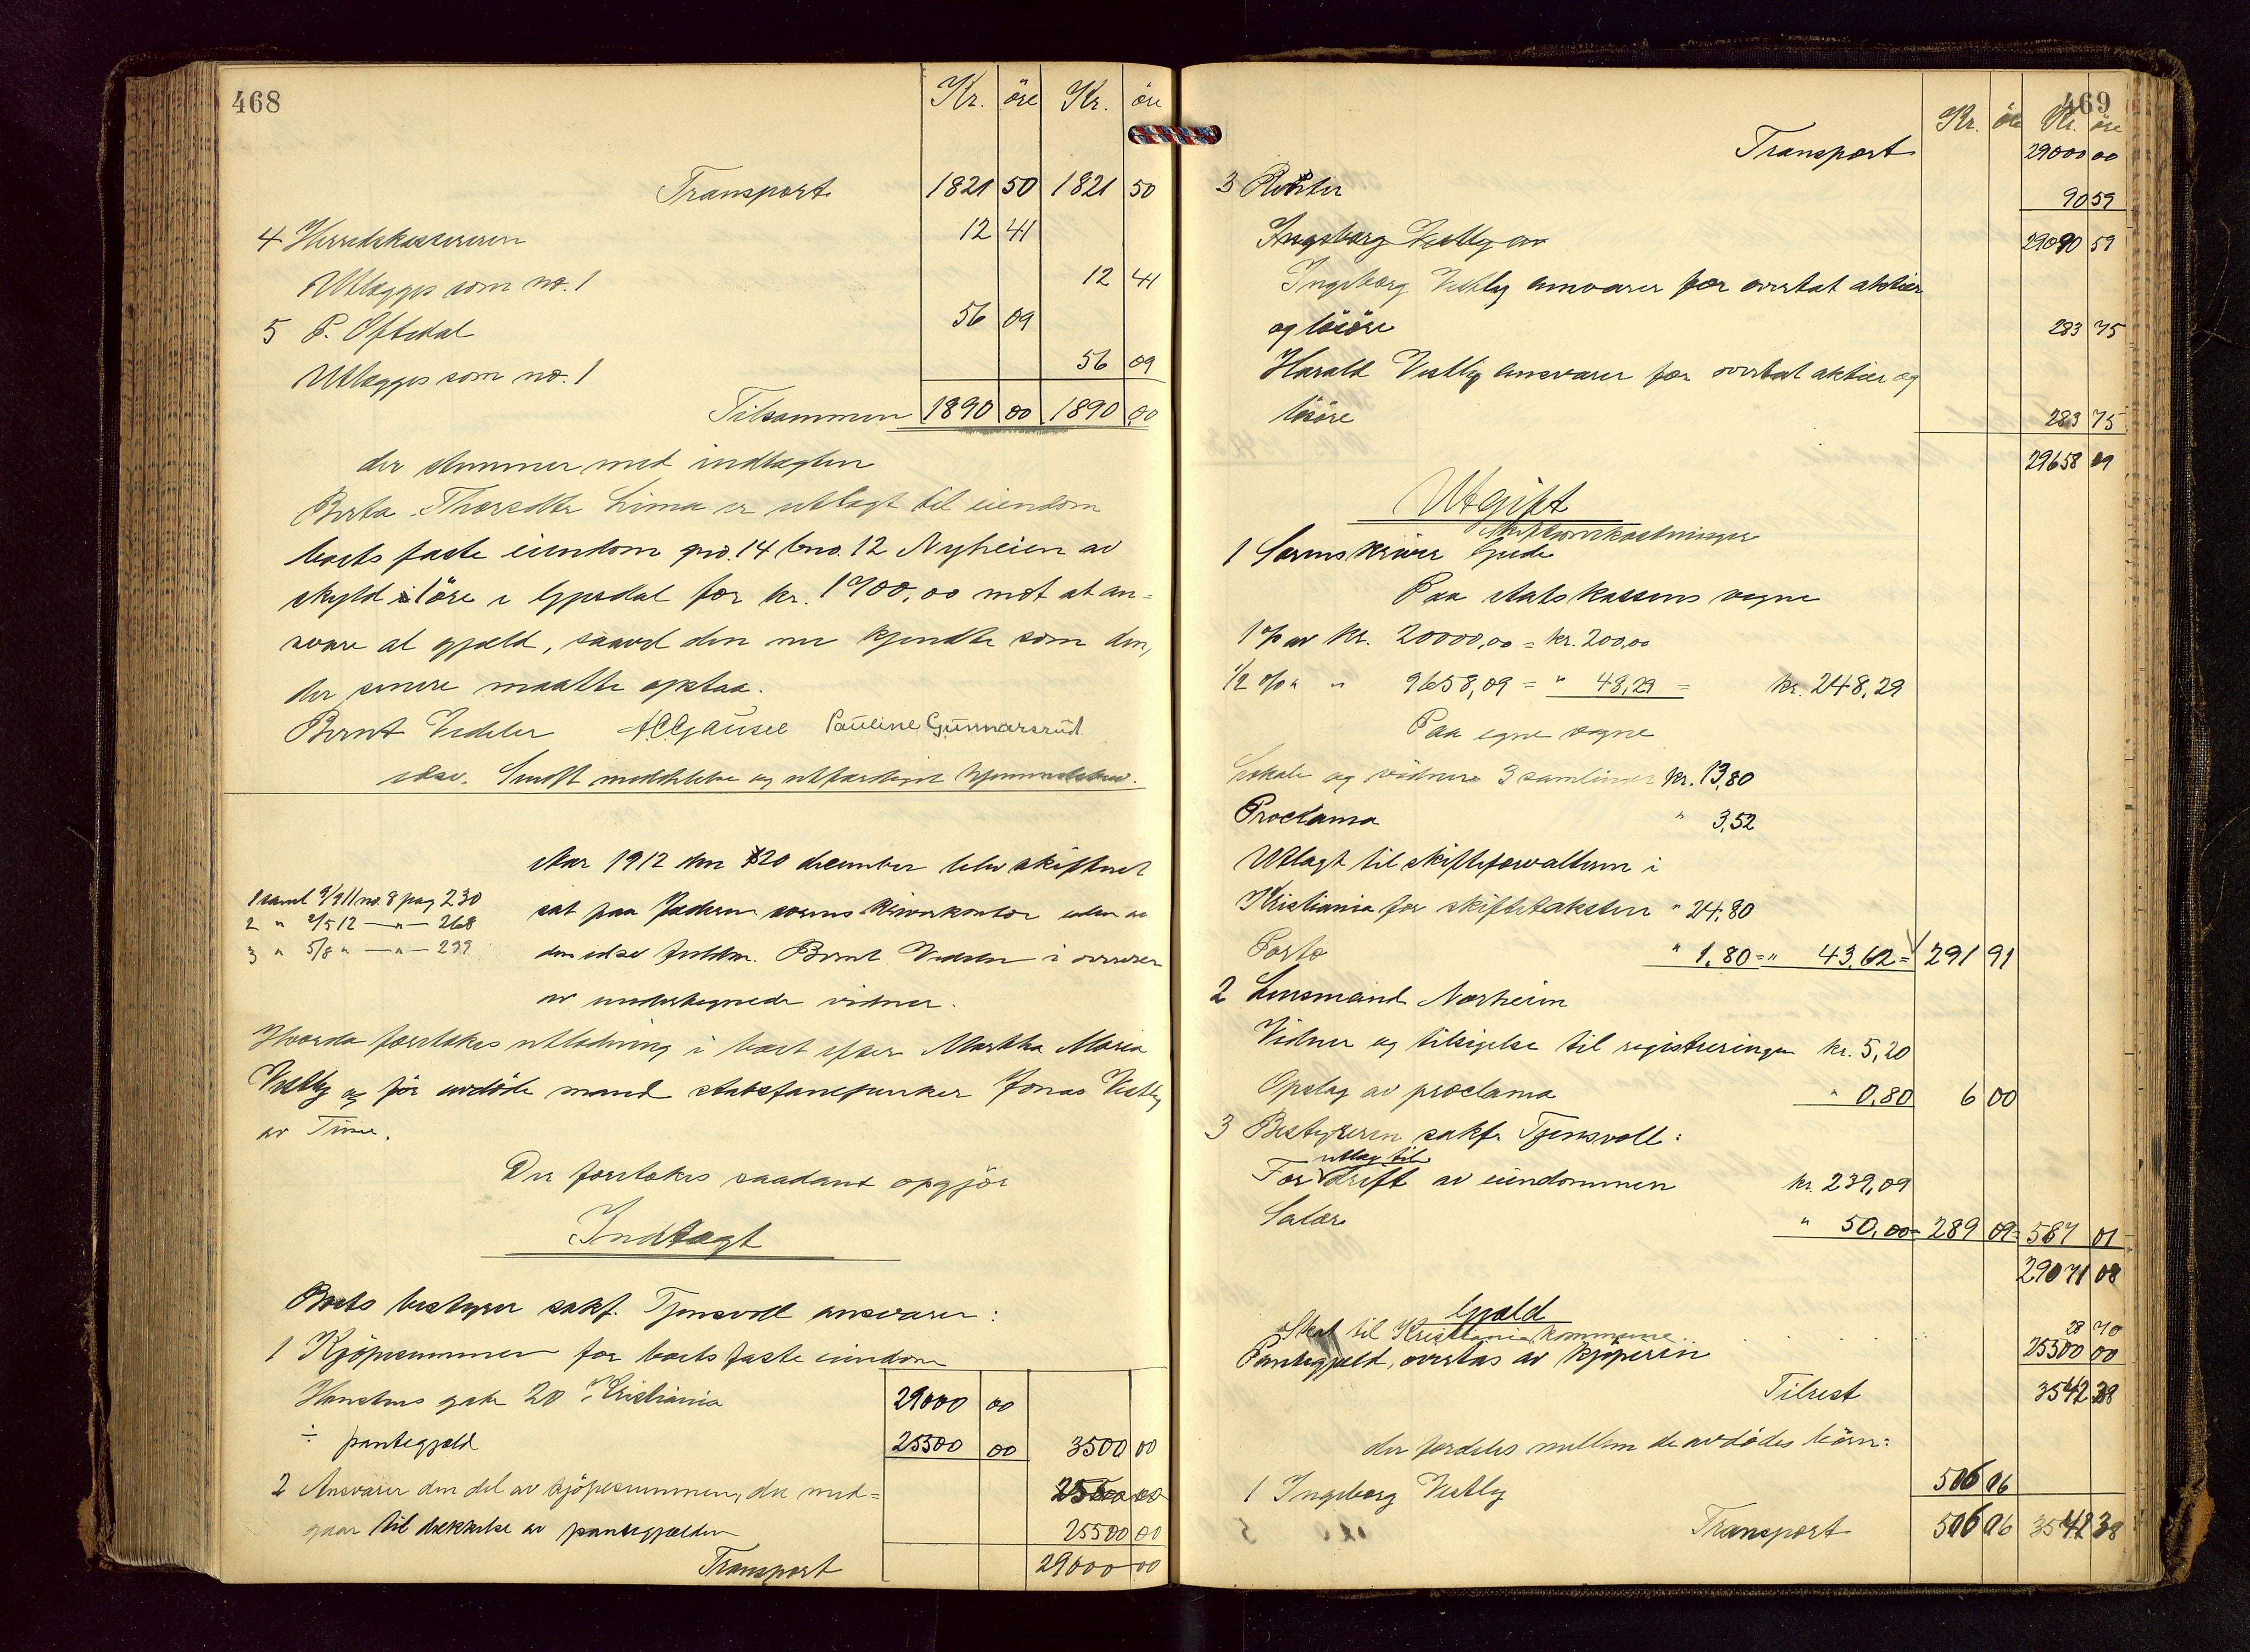 468
Kr. öre Kr. öre
Transport 1821 50 1821 50
4 Herredskassereren 12 41
Utlægges som no. 1 12 41
5 P. Oftedal 56 09
Utlægges som no. 1 56 09
Tilsammen 1890 00 1890 00
der stemmer med indtægten
Berta Thorsdtr Lima er utlagt til eiendom
boets faste eiendom gno. 14 bno. 12 Nyheien av
skyld 1 öre i Gjesdal for kr. 1700,00 mot at an=
svare al gjæld, saavel den nu kjendte som den,
der senere maatte opstaa.
Bernt Vedeler A.C.Gausel Pauline Gunnarsrud
edsv. Sendt meddelelse og utfærdiget hjemmelsbrev.
Aar 1912 den 20 december blev skifteret
1 saml 9/9 11 no. 8 pag 230
sat paa Jæderen sorenskriverkontor uten av
2 " 2/5 12 —"— 268
den edsv fuldm. Bernt Vedeler i overvær
3 " 5/8 " —"— 299
av undertegnede vidner.
Hvorda foretokes utlodning i boet efter Martha Maria
Vestly og før avdøde mand statsfanefunker Jonas Vestly
av Time.
Der foretokes saadant opgjör
Indtægt
Boets bestyrer sakf. Tjensvoll ansvarer:
1 Kjöpesummen for boets faste eiendom
gate 20 i Kristiania 29000 00
÷ pantegjæld 25500 00 3500 00
2 Ansvarer den del av kjöpesummen, der med=
gaar til dækkelse av pantegjælden 25500 00
Transport 29000 00
469
Kr. öre Kr. öre
Transport 29000 00
3 Renter 90 59
Ingeborg Vestly an 29090 59
Ingeborg Vestly ansvarer for overtat aktier
og lösöre 283 75
Harald Vestly ansvarer for overtat aktier og
lösöre 283 75
29658 09
Utgift
skifteomkostninger
1 Sorenskriver Gjede
Paa statskassens vegne
1 % av kr. 20000,00 = kr. 200,00
1/2 % " " 9658,09 = " 48,29 = kr. 248,29
Paa egne vegne
Lokale og vidner 3 samlinger kr. 13,80
Proclama " 3,52
Utlagt til skifteforvalteren i
Kristiania for skiftetaksten " 24,80
Porto " 1,80 = " 43,62 = 291 91
2 Lensmand Norheim
Vidner og tilsigelse til registreringen kr. 5,20
Opslag av proclama " 0,80 6 00
3 Bestyreren sakf. Tjensvoll:
utlæg til
For drift av eiendommen kr. 239,09
Salær " 50,00 = 289 09 = 587 01
29071 08
Gjæld
Skat til Kristiania kommune 28 70
Pantegjæld, overtas av kjöperen 25500 00
Tilrest 3542 38
der fordeles mellem de avdødes börn:
1 Ingeborg Vestly 506 06
Transport 506 06 3542 38